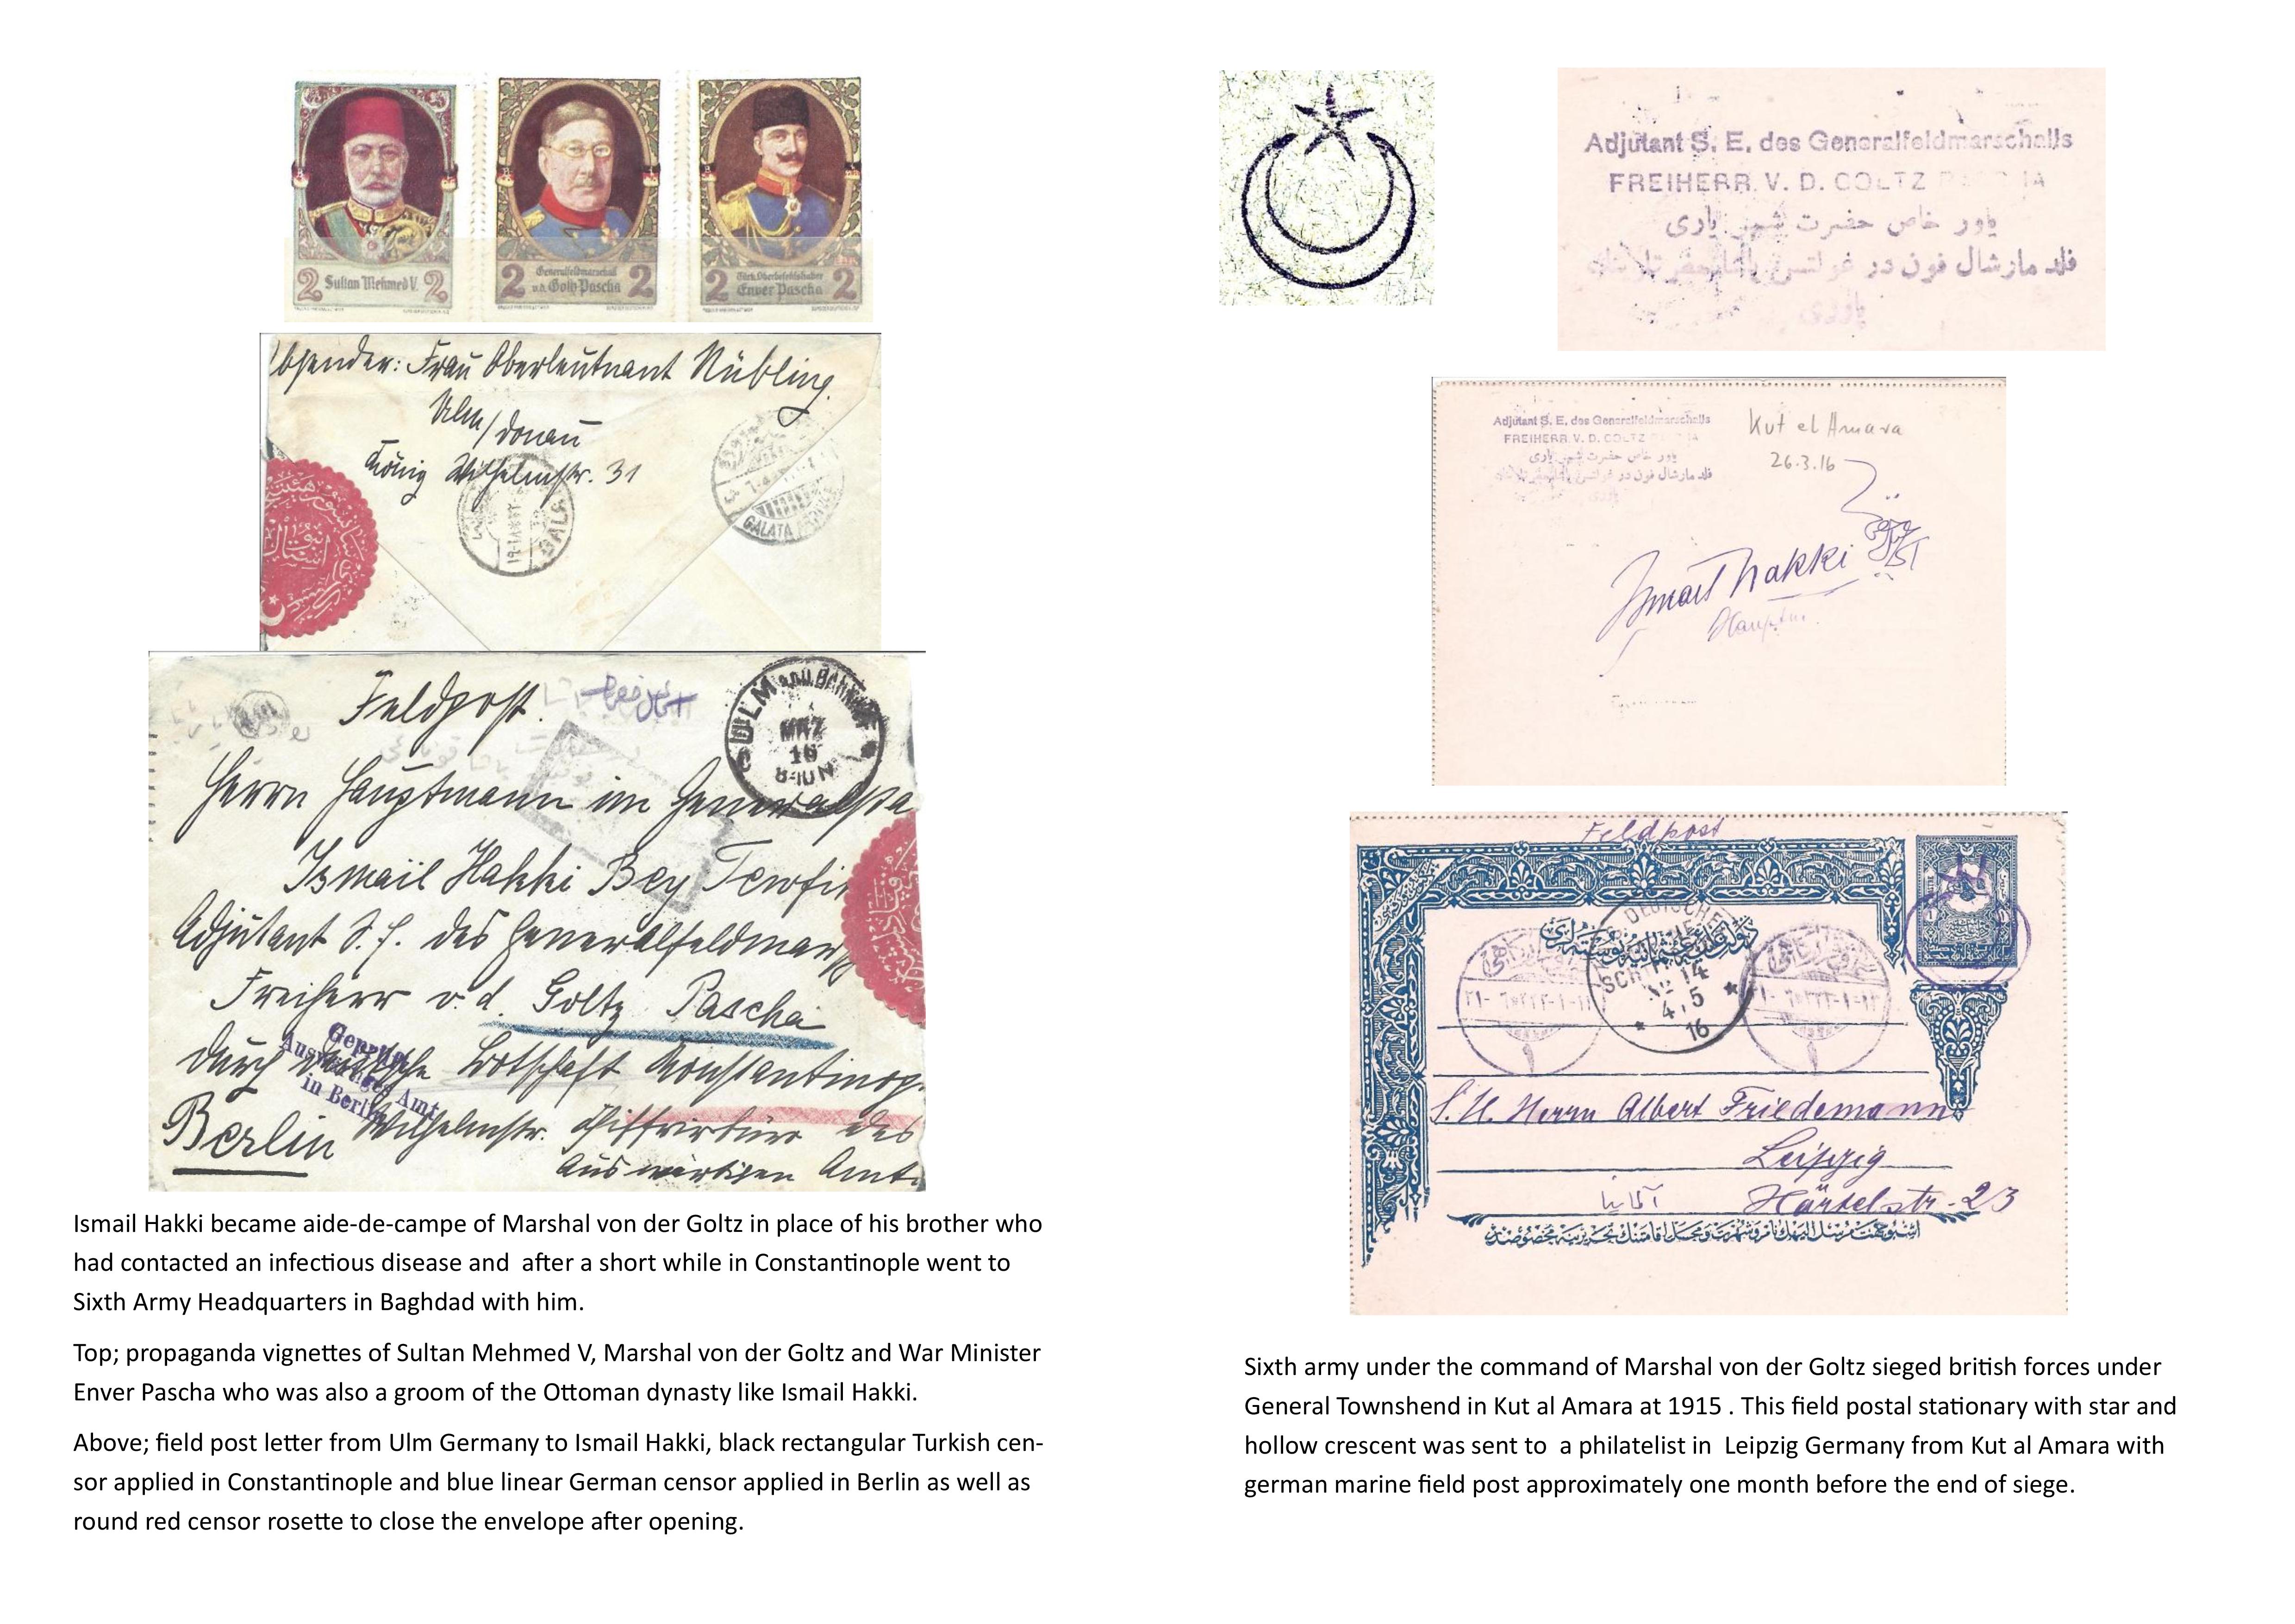 2 Sultan Mehmed V. 2
2 Generalfeldmarschall 2
v.d. Goltz Pascha
2 Türk. Oberbefehlshaber 2
Enver Pascha
Absender: Frau Oberleutnant Nübling
Ulm/Donau
König Wilhelmstr. 31
GALATA
Feldpost.
ULM
MRZ
16
8-10 N
Herrn Hauptmann im
Ismaïl Hakki Bey
Adjutant S. E. des
Freiherr v. d. Goltz Pascha
durch Botschaft
Geprüft
Auswärtiges Amt
in Berlin
Berlin Wilhelmstr. des
Auswärtigen Amt
Ismail Hakki became aide-de-campe of Marshal von der Goltz in place of his brother who
had contacted an infectious disease and after a short while in Constantinople went to
Sixth Army Headquarters in Baghdad with him.
Top; propaganda vignettes of Sultan Mehmed V, Marshal von der Goltz and War Minister
Enver Pascha who was also a groom of the Ottoman dynasty like Ismail Hakki.
Above; field post letter from Ulm Germany to Ismail Hakki, black rectangular Turkish cen-
sor applied in Constantinople and blue linear German censor applied in Berlin as well as
round red censor rosette to close the envelope after opening.
Adjutant S. E. des Generalfeldmarschalls
FREIHERR V. D. GOLTZ
یاور خاص حضرت
فلد مارشال فون در غولتس
یاوری
Adjutant S. E. des Generalfeldmarschalls
FREIHERR V. D. GOLTZ
یاور خاص حضرت
فلد مارشال فون در غولتس
Kut el Amara
26.3.16
Ismail Hakki
Hauptm.
Feldpost
DEUTSCHE
No 14
4.5
16
S. H. Herrn Albert Friedemann
Leipzig
آلمانیا Härtelstr. 23
Sixth army under the command of Marshal von der Goltz sieged british forces under
General Townshend in Kut al Amara at 1915 . This field postal stationary with star and
hollow crescent was sent to a philatelist in Leipzig Germany from Kut al Amara with
german marine field post approximately one month before the end of siege.